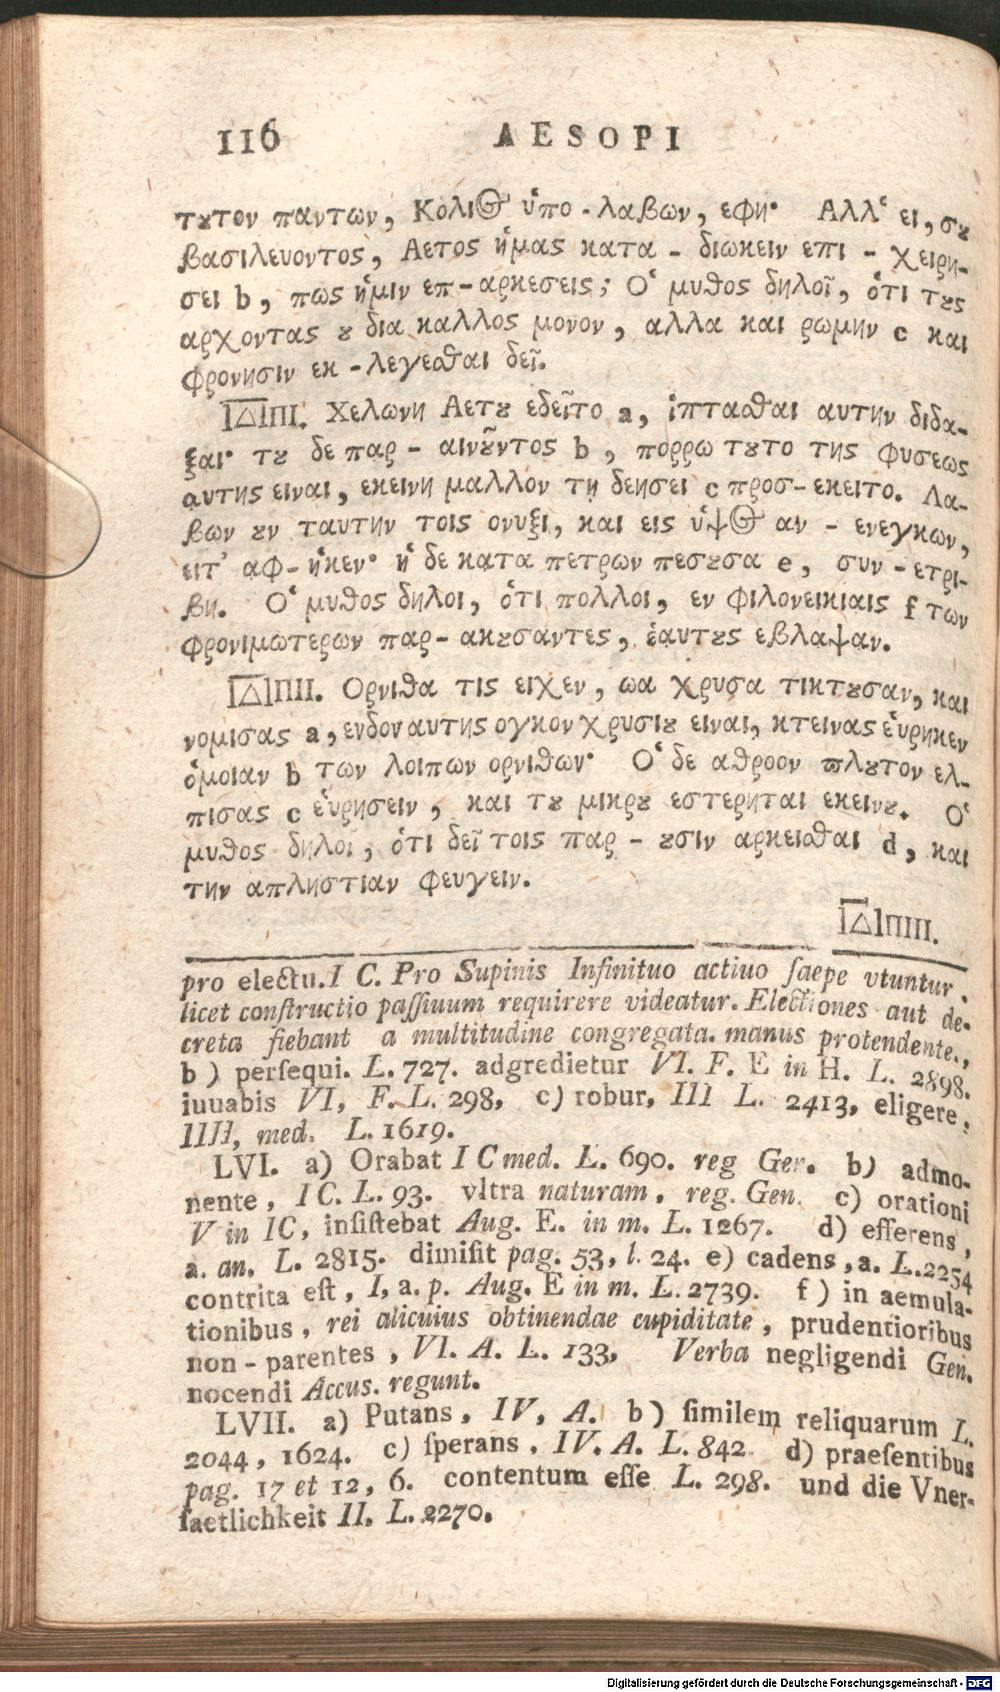 116 AESOPI
τȣτον παντων, Κολιος ὑπο-λαβων, εφη· Αλλ᾽ ει, σȣ
βασιλευοντος, Αετος ἡμας κατα-διωκειν επι-χειρη-
σει b, πως ἡμιν επ-αρκεσεις; Ο῾ μυθος δηλοῖ, ὁτι τȣς
αρχοντας ȣ δια καλλος μονον, αλλα και ρωμην c και
φρονησιν εκ-λεγεσθαι δεῖ.
|Δ|ΠΙ. Χελωνη Αετȣ εδεῖτο a, ἱπτασθαι αυτην διδα-
ξαι· τȣ δε παρ-αινȣ͂ντος b, πορρω τȣτο της φυσεως
αυτης ειναι, εκεινη μαλλον τῃ δεησει c προσ-εκειτο. Λα-
βων ȣν ταυτην τοις ονυξι, και εις ὑψος αν-ενεγκων,
ειτ᾽ αφ-ῆκεν· ἡ δε κατα πετρων πεσȣσα e, συν-ετρι-
βη. Ο῾ μυθος δηλοι, ὁτι πολλοι, εν φιλονεικιαις f των
φρονιμωτερων παρ-ακȣσαντες, ἑαυτȣς εβλαψαν.
|Δ|ΠΙΙ. Ορνιθα τις ειχεν, ωα χρυσα τικτȣσαν, και
νομισας a, ενδον αυτης ογκον χρυσιȣ ειναι, κτεινας εὑρηκεν
ὁμοιαν b των λοιπων ορνιθων· Ο῾ δε αθροον πλȣτον ελ-
πισας c εὑρησειν, και τȣ μικρȣ εστερηται εκεινȣ. Ο῾
μυθος δηλοῖ, ὁτι δεῖ τοις παρ-ȣσιν αρκεισθαι d, και
την απληστιαν φευγειν.
|Δ|ΠΙΙΙ.
pro electu. I C. Pro Supinis Infinituo actiuo ſaepe vtuntur.
licet conſtructio paſſiuum requirere videatur. Electiones aut de-
creta fiebant a multitudine congregata. manus protendente.,
b) perſequi. L. 727. adgredietur VI. F. E in H. L. 2898.
iuuabis VI, F. L. 298, c) robur, III L. 2413, eligere,
IIII, med. L. 1619.
LVI. a) Orabat I C med. L. 690. reg Ger. b) admo-
nente, I C. L. 93. vltra naturam, reg. Gen. c) orationi
V in IC, inſiſtebat Aug. E. in m. L. 1267. d) efferens,
a. an. L. 2815. dimiſit pag. 53, l. 24. e) cadens, a. L. 2254
contrita eſt, I, a. p. Aug. E in m. L. 2739. f) in aemula-
tionibus, rei alicuius obtinendae cupiditate, prudentioribus
non-parentes, VI. A. L. 133, Verba negligendi Gen.
nocendi Accus. regunt.
LVII. a) Putans, IV, A. b) ſimilem reliquarum L.
2044, 1624. c) ſperans, IV. A. L. 842 d) praeſentibus
pag. 17 et 12, 6. contentum eſſe L. 298. und die Vner-
ſaetlichkeit II. L. 2270.
Digitalisierung gefördert durch die Deutsche Forschungsgemeinschaft - DFG